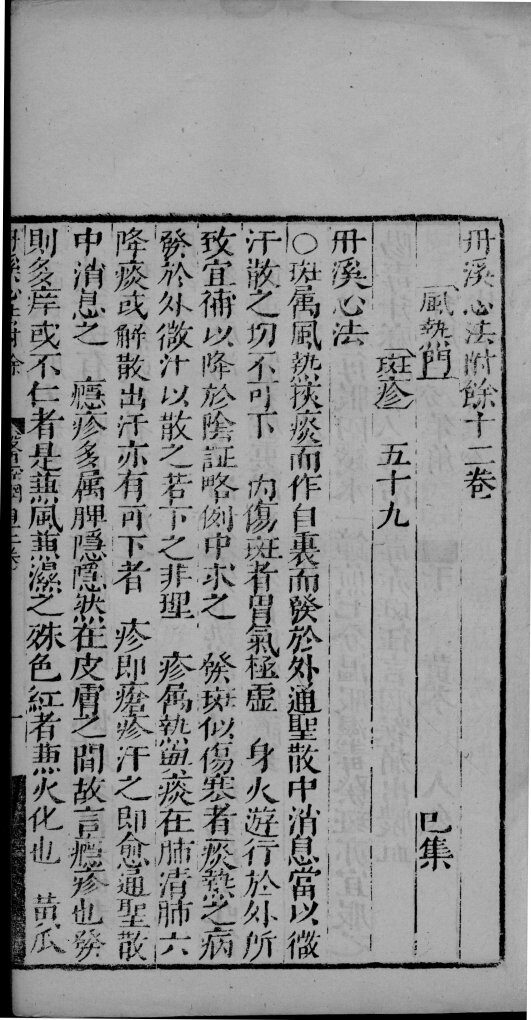 丹溪心法附餘十二卷
風熱門　巳集
斑疹　五十九
丹溪心法
○斑属風熱挾痰而作自裏而發於外通聖散中消息當以微
汗散之切不可下　内傷斑者胃氣極虚　身火遊行於外所
致宜補以降於陰証略例中求之　發斑似傷寒者痰熱之病
發於外微汗以散之若下之非理　疹属熱與痰在肺清肺六
降痰或解散出汗亦有可下者　疹即瘡疹汗之即愈通聖散
中消息之　癮疹多属脾隠隠然在皮膚之間故言癮疹也發
則多痒或不仁者是兼風兼濕之殊色紅者兼火化也　黄瓜
丹溪心法附余